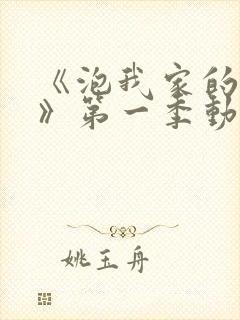 《泡我家的
》第一季動
姚玉舟